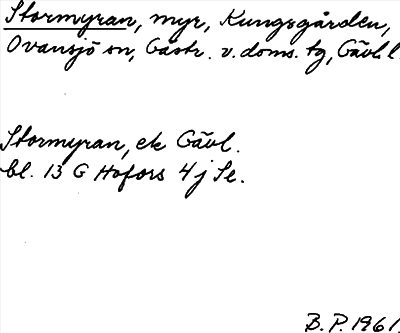 Stormyran, myr, Kungsgården,
Ovansjö sn, Gästr. v. doms. tg, Gävl l.
Stormyran, ek Gävl.
bl. 13 G Hofors 4 j Se.
B. P. 1961.